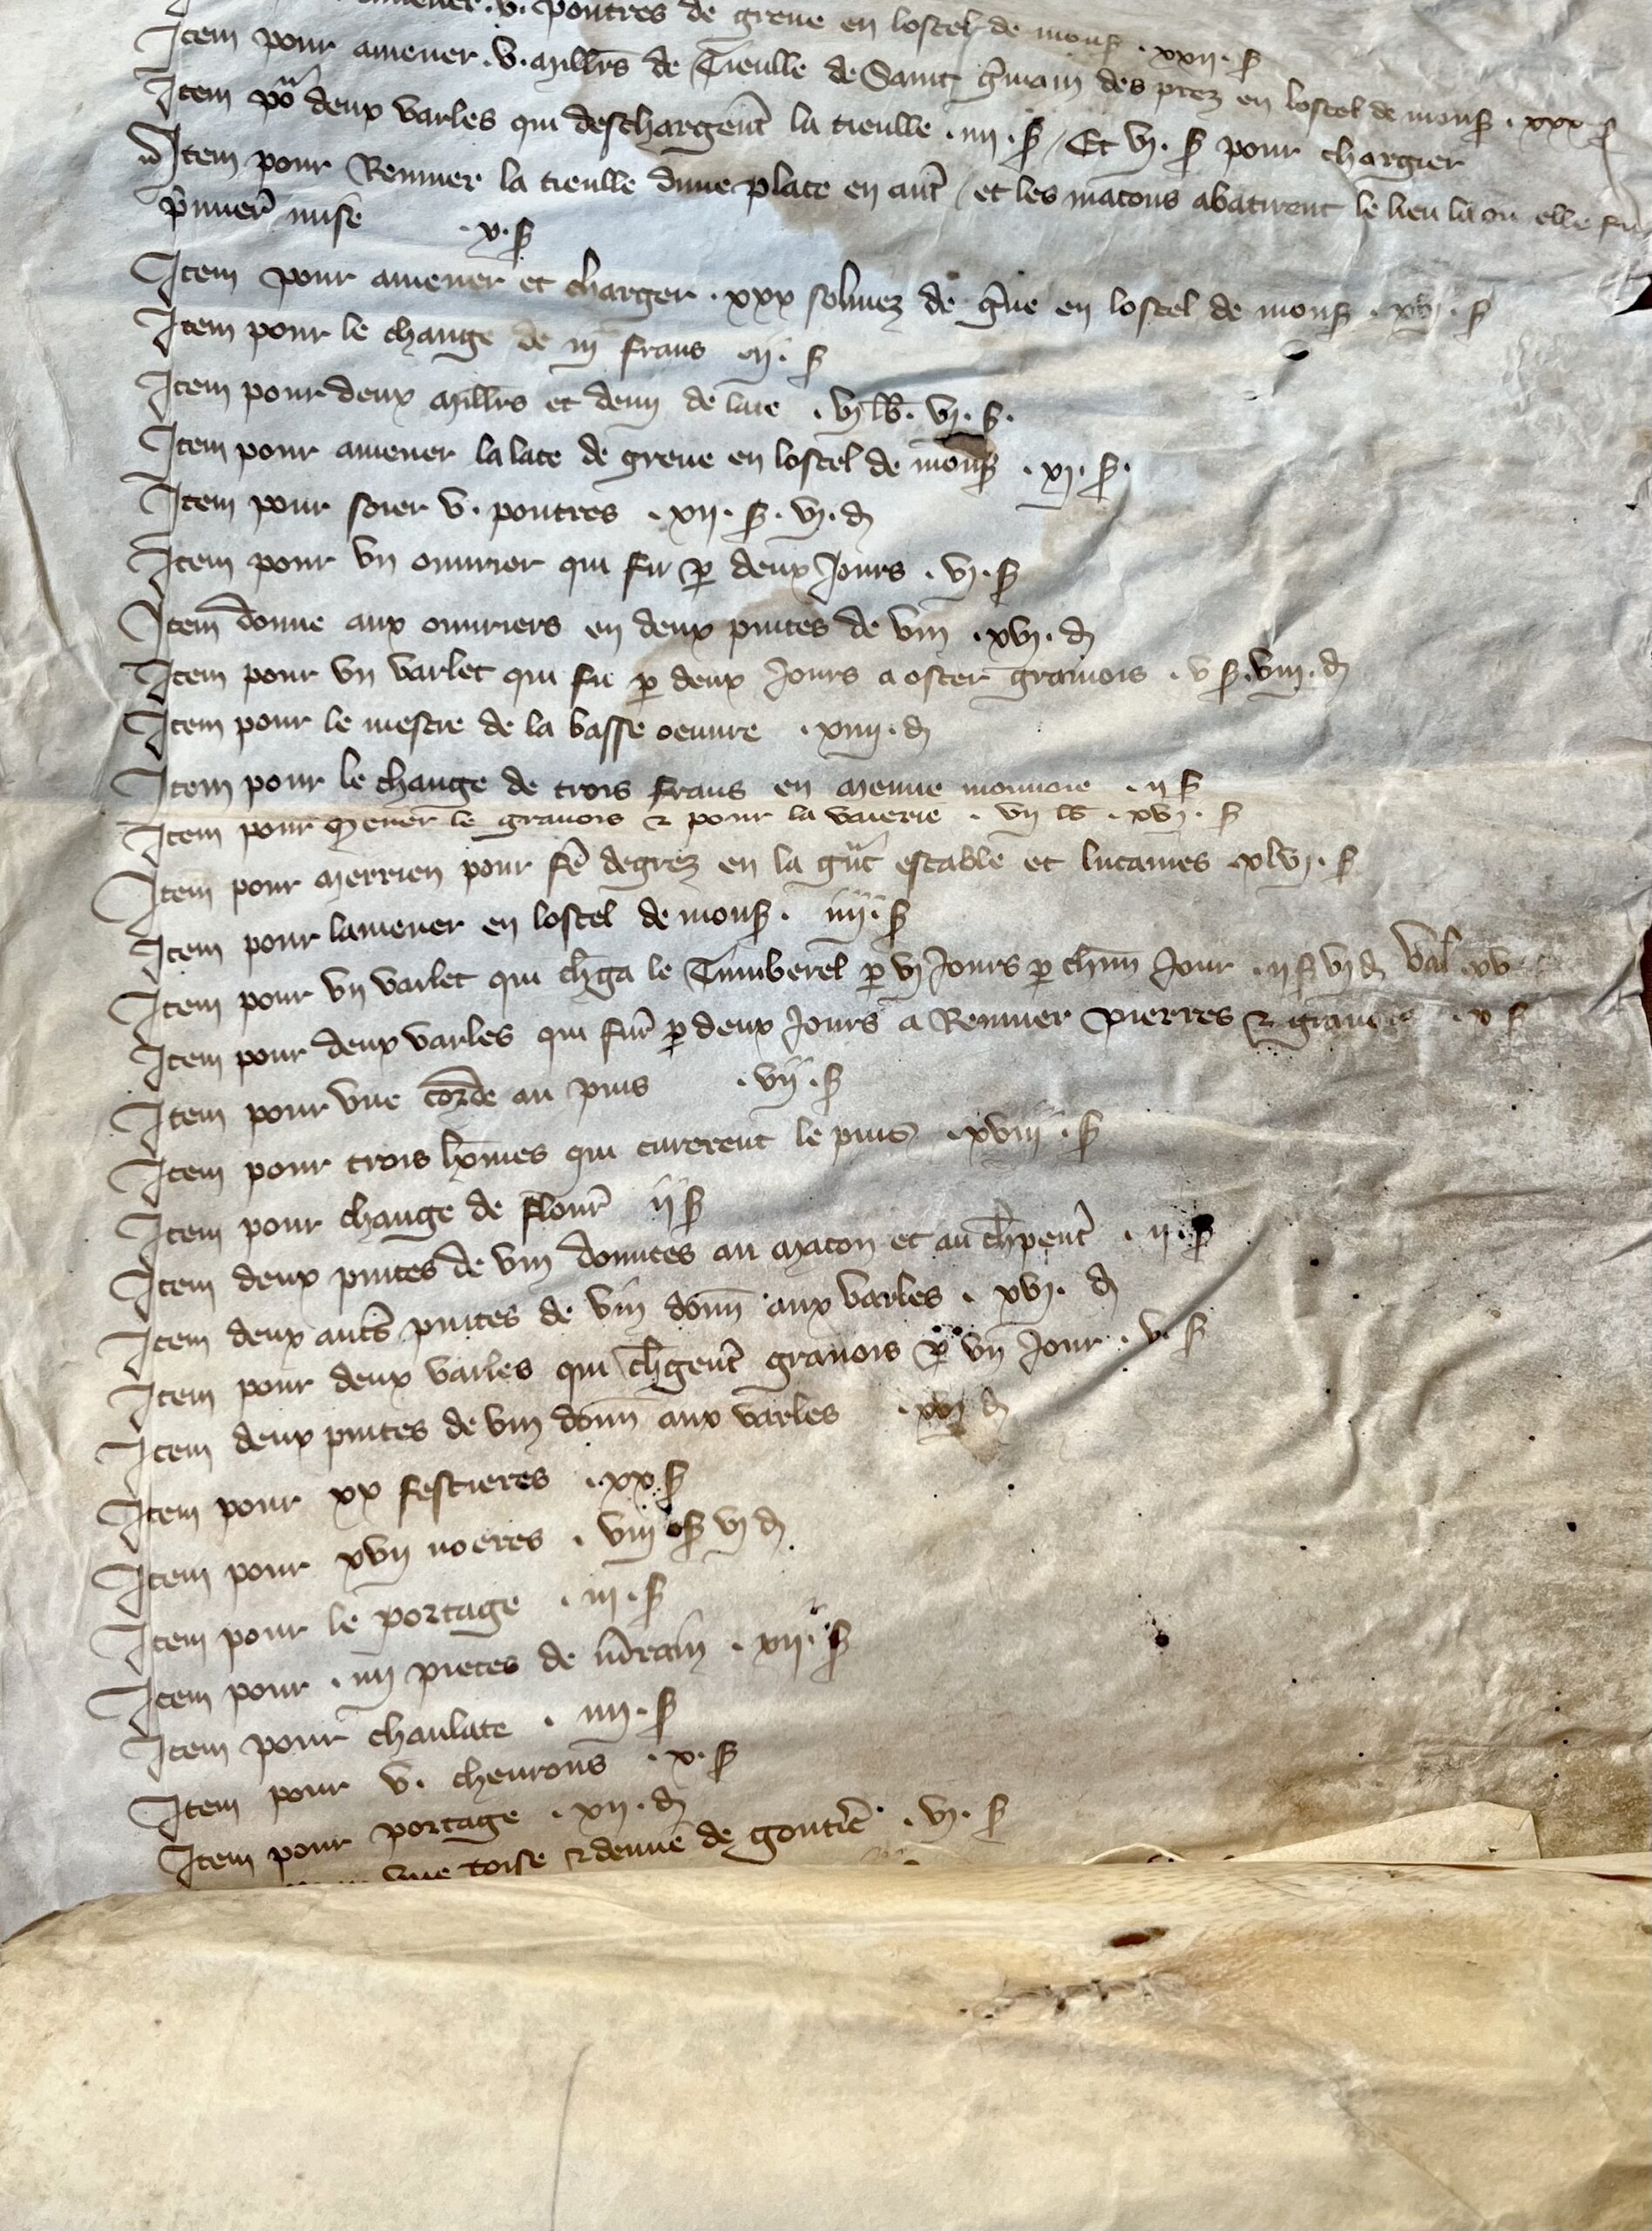 amener .v. poutres de greve en lostel de mons .xxii. s
Item pour amener .v. mill̄rs de Tieulle de Saint g̃main des prez en lostel de mons .xxx s
Item po᷑ deux varles qui deschargeēt la tieulle .iiii. s / Et vi. s pour chargier
Item pour Remuer la tieulle dune place en aut̃ / et les macons abatirent le lieu la ou elle fu
p̃mier̃ mise .x. s
Item pour amener et charger .xxx solivez de g̃ve en lostel de mons .xvi. s
Item pour le change de iii frans .iii. s
Item pour deux mill̄rs et demi de late .vi lb. vi. s.
Item pour amener la late de greve en lostel de mons .xi. s.
Item pour soier v. poutres .xii. s. vi. d
Item pour un ouurier qui fu p̱ deux Jours .vi. s
Item donne aux ouuriers en deux pintes de vin .xvi. d
Item pour un varlet qui fu p̱ deux Jours a oster gravois .v s. viii. d
Item pour le mestre de la basse oeuure .xiiii. d
Item pour le change de trois frans en menue monnoie .ii s
Item pour mener le gravois & pour la vaierie .vii lb .xvi. s
Item pour merrien pour fẽ degrez en la g̃nt estable et lucarnes .xlvi. s
Item pour lamener en lostel de mons. iiii. s
Item pour un varlet qui ch̄ga le Tumberel p̱ vi Jours p̱ chūn Jour .ii s vi d val̄ .xv
Item pour deux varles qui fur̃ p̱ deux Jours a Remuer pierres & gravois .x s
Item pour une corde au puis .vii. s
Item pour trois hōmes qui curerent le puis .xviii. s
Item pour change de flour̃ ii s
Item deux pintes de vin donnees au macon et au ch̄pent̃ .ii. s
Item deux aut̃s pintes de vin doñn aux varles .xvi. d
Item pour deux varles qui ch̄gent̃ gravois p̱ un Jour .v. s
Item deux pintes de vin doñn aux varles .xvi d
Item pour xx festieres .xx. s
Item pour xvii noeres .viii s vi d
Item pour le portage .iii. s
Item pour .iiii pieces de m̃rain .xii. s
Item pour chanlate .iiii. s
Item pour v. cheurons .x. s
Item pour portage .xii. d
une toise & demie de goutie᷑ .vi. s